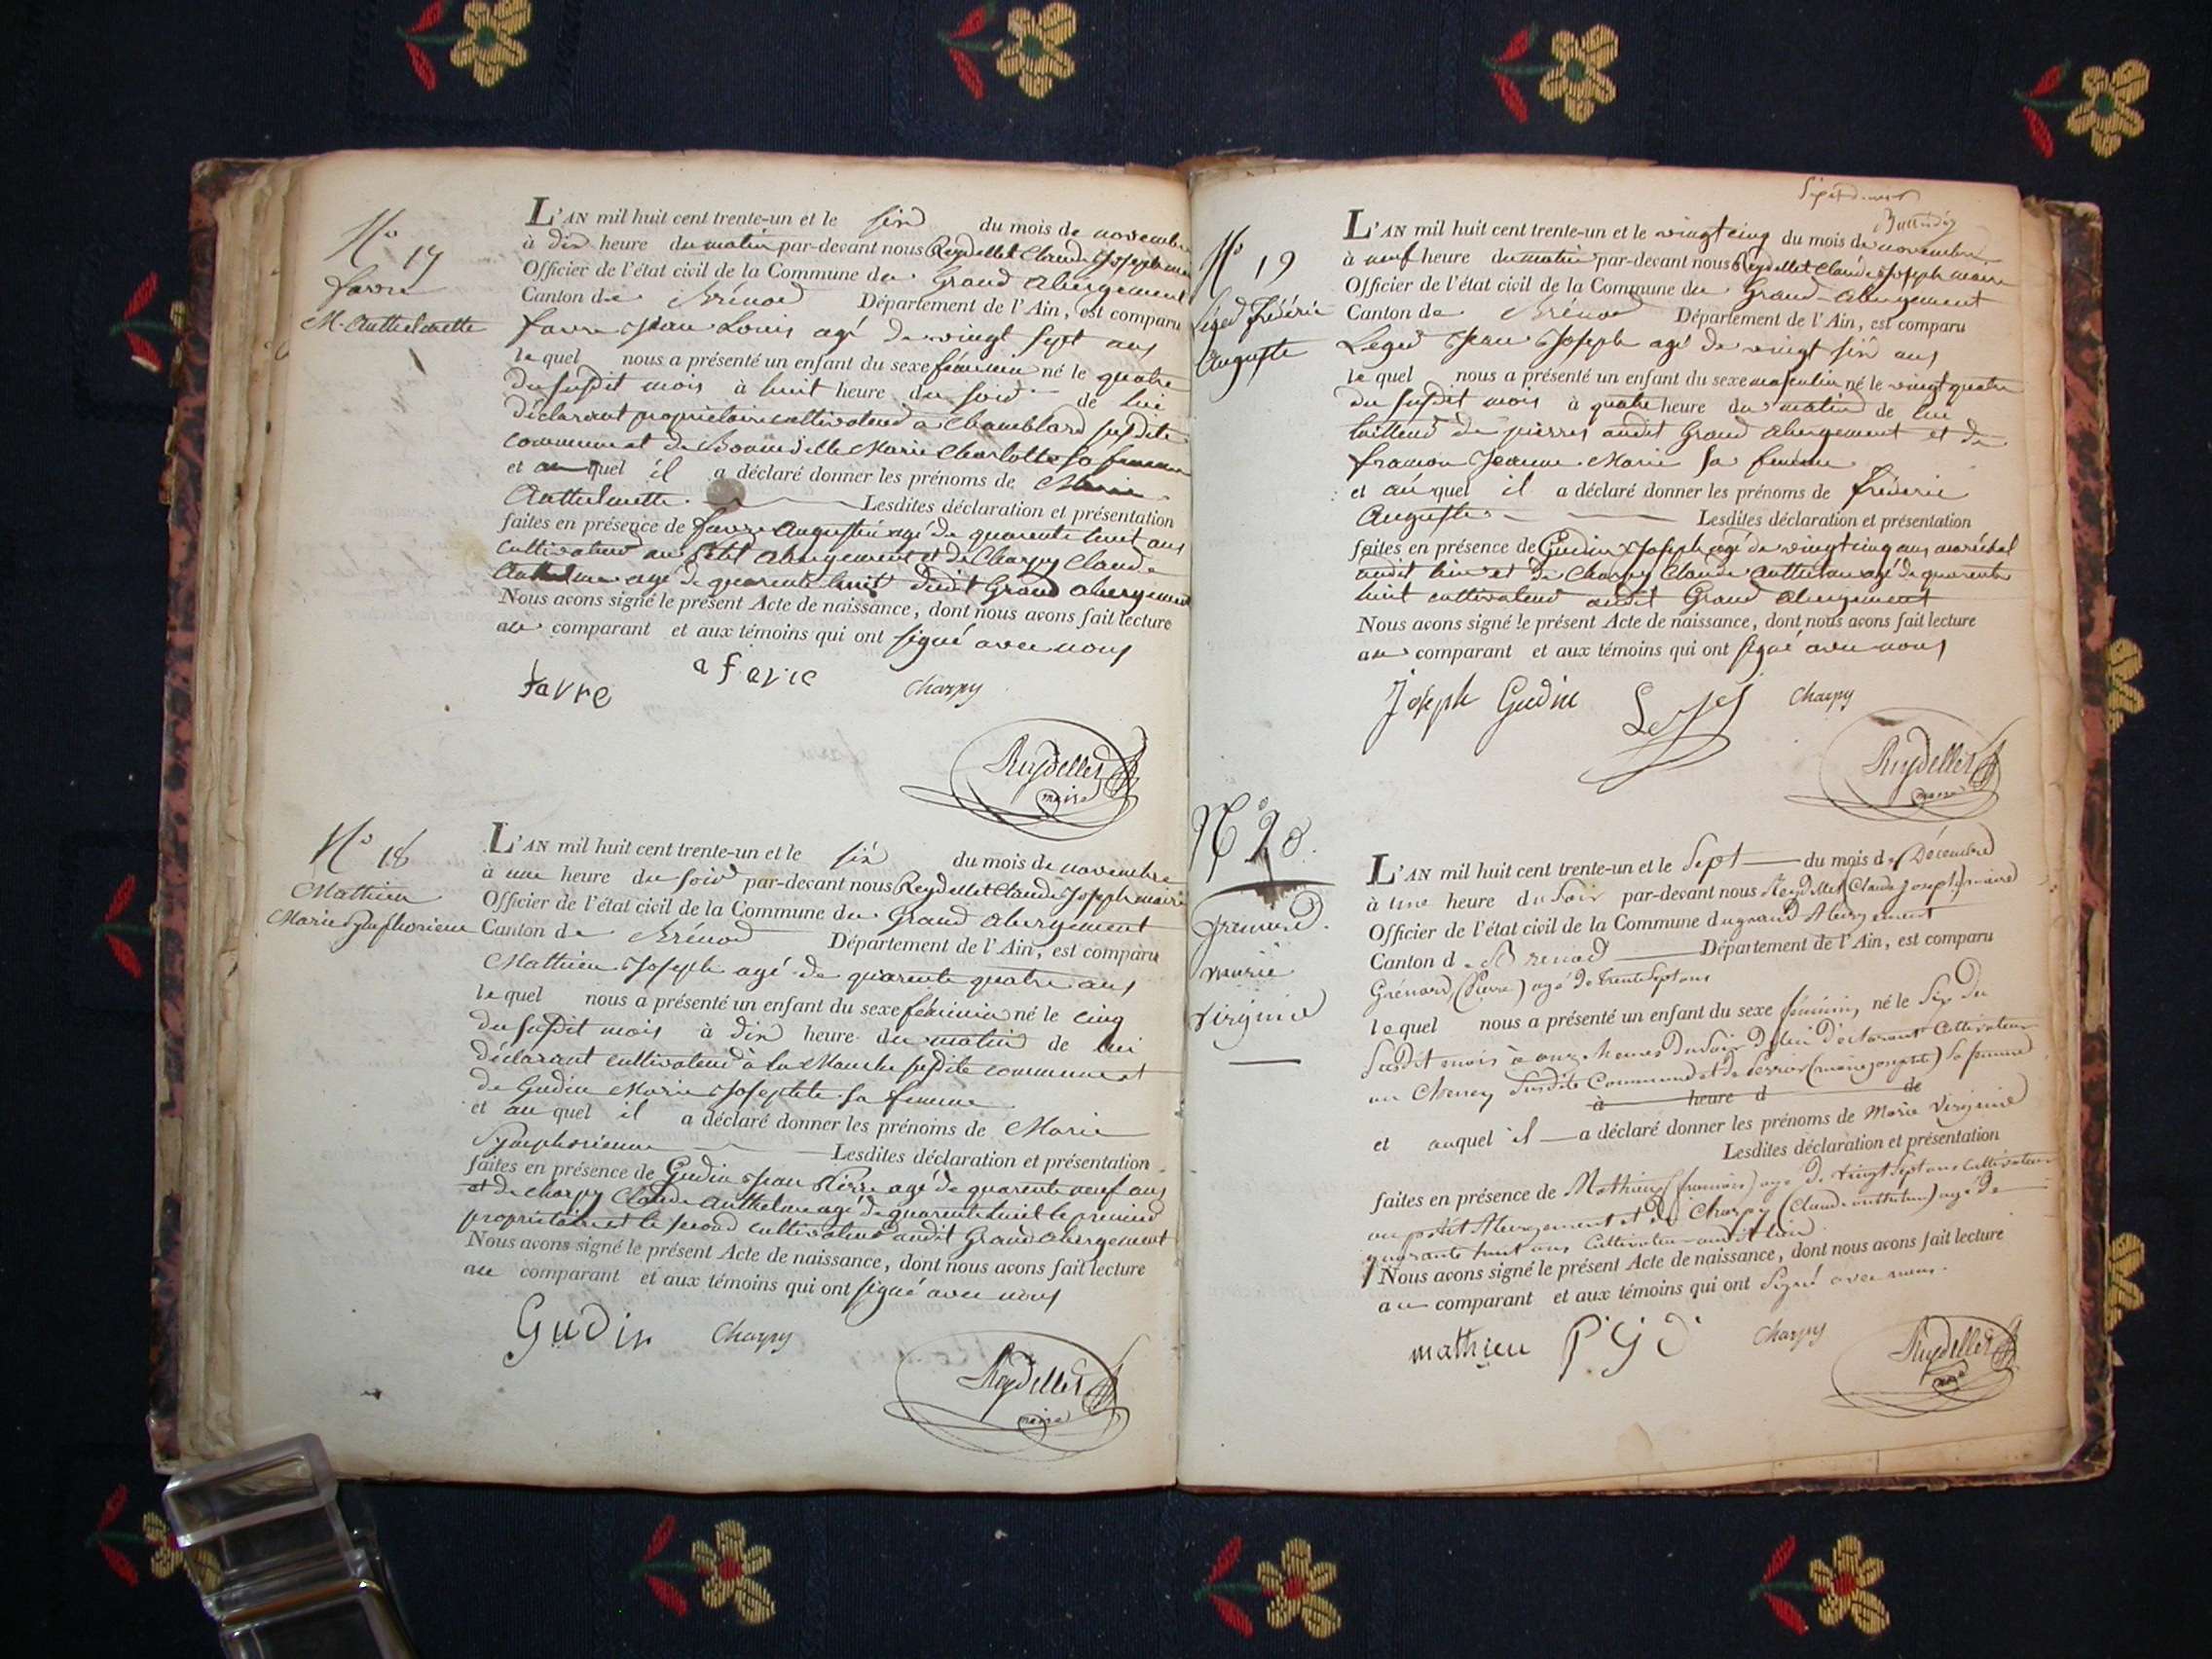 N° 17
favre
M. Anthelmette
L'AN mil huit cent trente-un et le six du mois de novembre
à dix heure du matin par-devant nous Reydellet Claude Joseph maire
Officier de l'état civil de la Commune du Grand abergement
Canton de Brénod Département de l'Ain, est comparu
favre Jean Louis agé de vingt sept ans
lequel nous a présenté un enfant du sexe féminin né le quatre
du susdit mois à huit heure du soir de lui
déclarant propriétaire cultivateur a Chamblard susdite
commune et de Marie Charlotte sa femme
et au quel il a déclaré donner les prénoms de Marie
Anthelmette. Lesdites déclaration et présentation
faites en présence de favre Augustin agé de quarante huit ans
cultivateur au Petit abergement et de Charpy Claude
Anthelme agé de quarante huit dudit Grand abergement
Nous avons signé le présent Acte de naissance, dont nous avons fait lecture
au comparant et aux témoins qui ont signé avec nous
favre a favre Charpy
Reydellet
maire
N° 18
Mathieu
Marie Symphorienne
L'AN mil huit cent trente-un et le six du mois de novembre
à une heure du soir par-devant nous Reydellet Claude Joseph maire
Officier de l'état civil de la Commune du Grand abergement
Canton de Brénod Département de l'Ain, est comparu
Mathieu Joseph agé de quarante quatre ans
lequel nous a présenté un enfant du sexe féminin né le cinq
du susdit mois à dix heure du matin de lui
déclarant cultivateur à la Manche susdite commune et
de Gudin Marie Josephte sa femme
et au quel il a déclaré donner les prénoms de Marie
Symphorienne Lesdites déclaration et présentation
faites en présence de Gudin Jean Pierre agé de quarante neuf ans
et de charpy Claude Anthelme agé de quarante huit le premier
propriétaire et le second cultivateur audit Grand abergement
Nous avons signé le présent Acte de naissance, dont nous avons fait lecture
au comparant et aux témoins qui ont signé avec nous
Gudin Charpy
Reydellet
maire
N° 19
Léger Fréderic
Auguste
L'AN mil huit cent trente-un et le vingt cinq du mois de novembre
à neuf heure du matin par-devant nous Reydellet Claude Joseph maire
Officier de l'état civil de la Commune du Grand-abergement
Canton de Brénod Département de l'Ain, est comparu
Leger Jean Joseph agé de vingt six ans
lequel nous a présenté un enfant du sexe masculin né le vingt quatre
du susdit mois à quatre heure du matin de lui
tailleur de pierres audit Grand abergement et de
Jeanne Marie sa femme
et au quel il a déclaré donner les prénoms de fréderic
Auguste Lesdites déclaration et présentation
faites en présence de Gudin Joseph agé de vingt cinq ans maréchal
audit lieu et de Charpy Claude Anthelme agé de quarante
huit cultivateur audit Grand abergement
Nous avons signé le présent Acte de naissance, dont nous avons fait lecture
au comparant et aux témoins qui ont signé avec nous
Joseph Gudin Leger Charpy
Reydellet
maire
N° 20.
marie
virginie
L'AN mil huit cent trente-un et le Sept du mois de Décembre
à une heure du Soir par-devant nous Reydellet (Claude Joseph) maire
Officier de l'état civil de la Commune du grand Abergement
Canton de Brenod Département de l'Ain, est comparu
Grénard (Pierre) agé de trente Sept ans
lequel nous a présenté un enfant du sexe féminin, né le Six du
Susdit mois à onze heures du Soir de lui déclarant Cultivateur
au Susdite Commune et de (marie josephte) Sa femme
à heure d de
et auquel il a déclaré donner les prénoms de Marie Virginie
Lesdites déclaration et présentation
faites en présence de Mathieu (francois) agé de vingt Sept ans Cultivateur
au petit Abergement et de Charpy (Claude anthelme) agé de
quarante huit ans Cultivateur audit lieu
Nous avons signé le présent Acte de naissance, dont nous avons fait lecture
au comparant et aux témoins qui ont Signé avec nous.
mathieu P. G Charpy
Reydellet